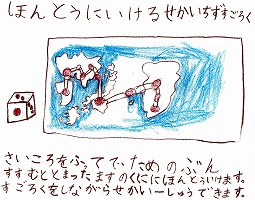 ほんとうにいけるせかいちずすごろく
さいころをふってでためのぶん
すすむととまったますのくににほんとういけます。
すごろくをしながらせかいーしゅうできます。